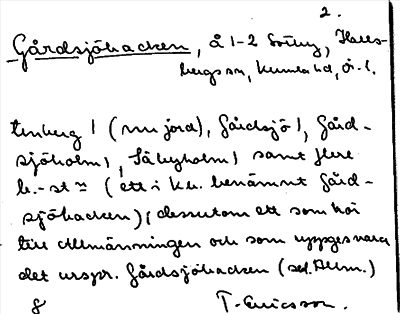 2.
Gårdsjöbacken, å 1-2 Sörby, Halls-
bergs sn, Kumla hd, Ör. l.
tenberg 1 (nu jord), Gårdsjö 1, Gård-
sjöholm 1, Säbyholm 1 samt flere
b.-st (ett i k.b. benämnt Gård-
sjöbacken); dessutom ett som hör
till Allmänningen och som uppges vara
det urspr. Gårdsjöbacken (sed. Allm.)
8 T. Ericsson.